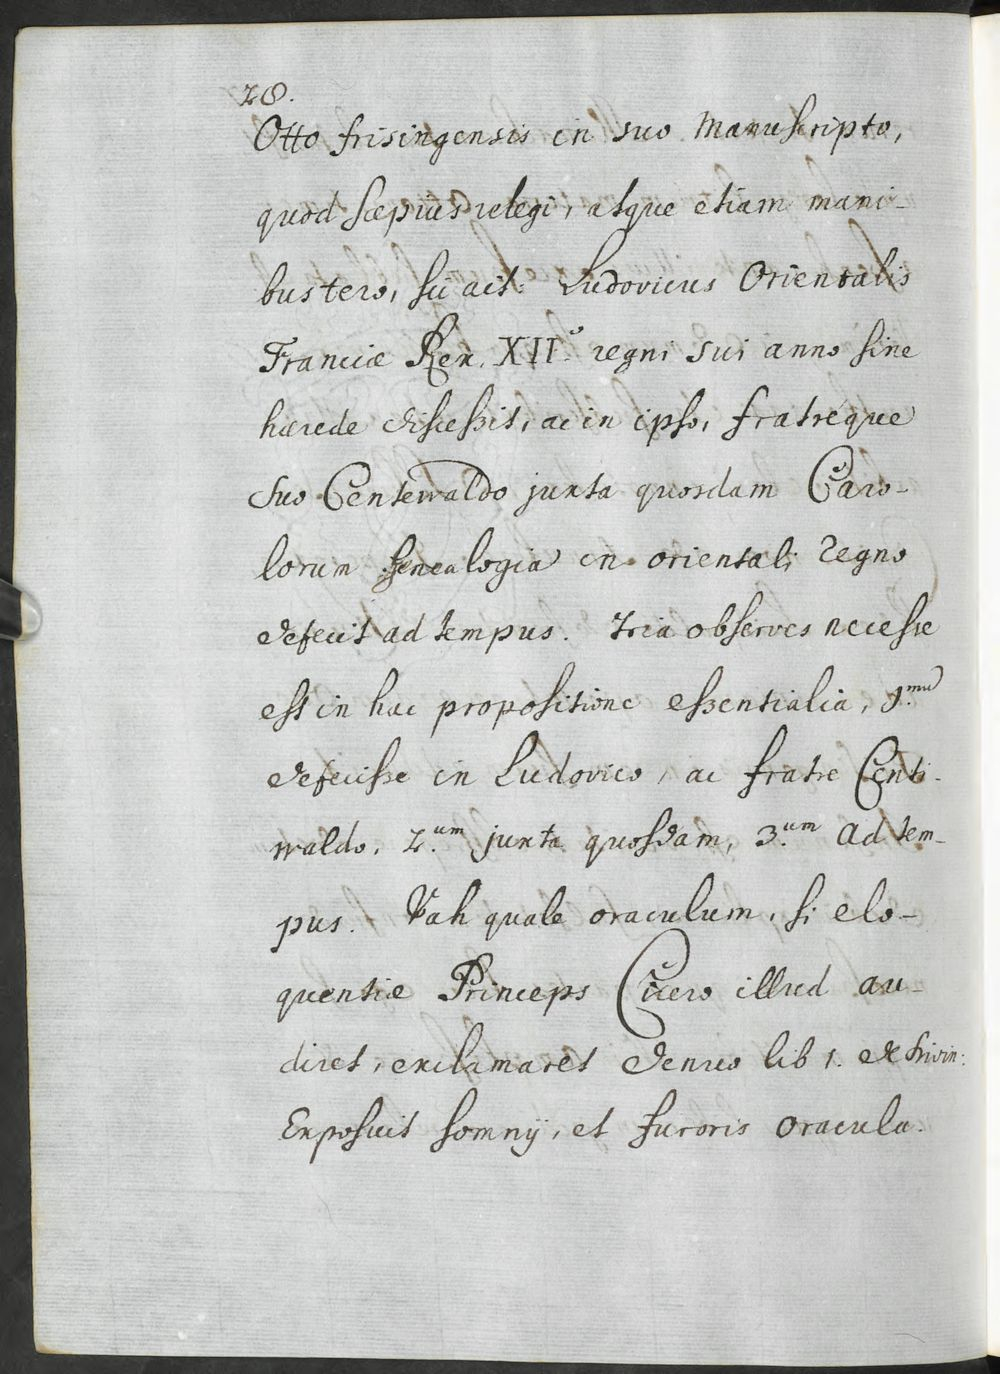 28.
Otto frisingensis in suo Manuscripto,
quod sæpius relegi, atque etiam mani-
bus tero, sic ait. Ludovicus Orientalis
Franciæ Rex. XIIº. regni sui anno sine
hærede discessit, ac in ipso, fratreque
suo Centewaldo juxta quosdam Caro-
lorum Genealogia in orientali Regno
defecit ad tempus. Tria observes necesse
est in hac propositione essentialia, 1.mu
defecisse in Ludovico, ac fratre Centi-
waldo, 2.um juxta quosdam, 3.um ad tem-
pus. Vah quale oraculum, si elo-
quentiæ Princeps Cicero illud au-
diret, exclamaret denuo lib 1. de Divin:
Exposuit somnÿ, et furoris oracula.